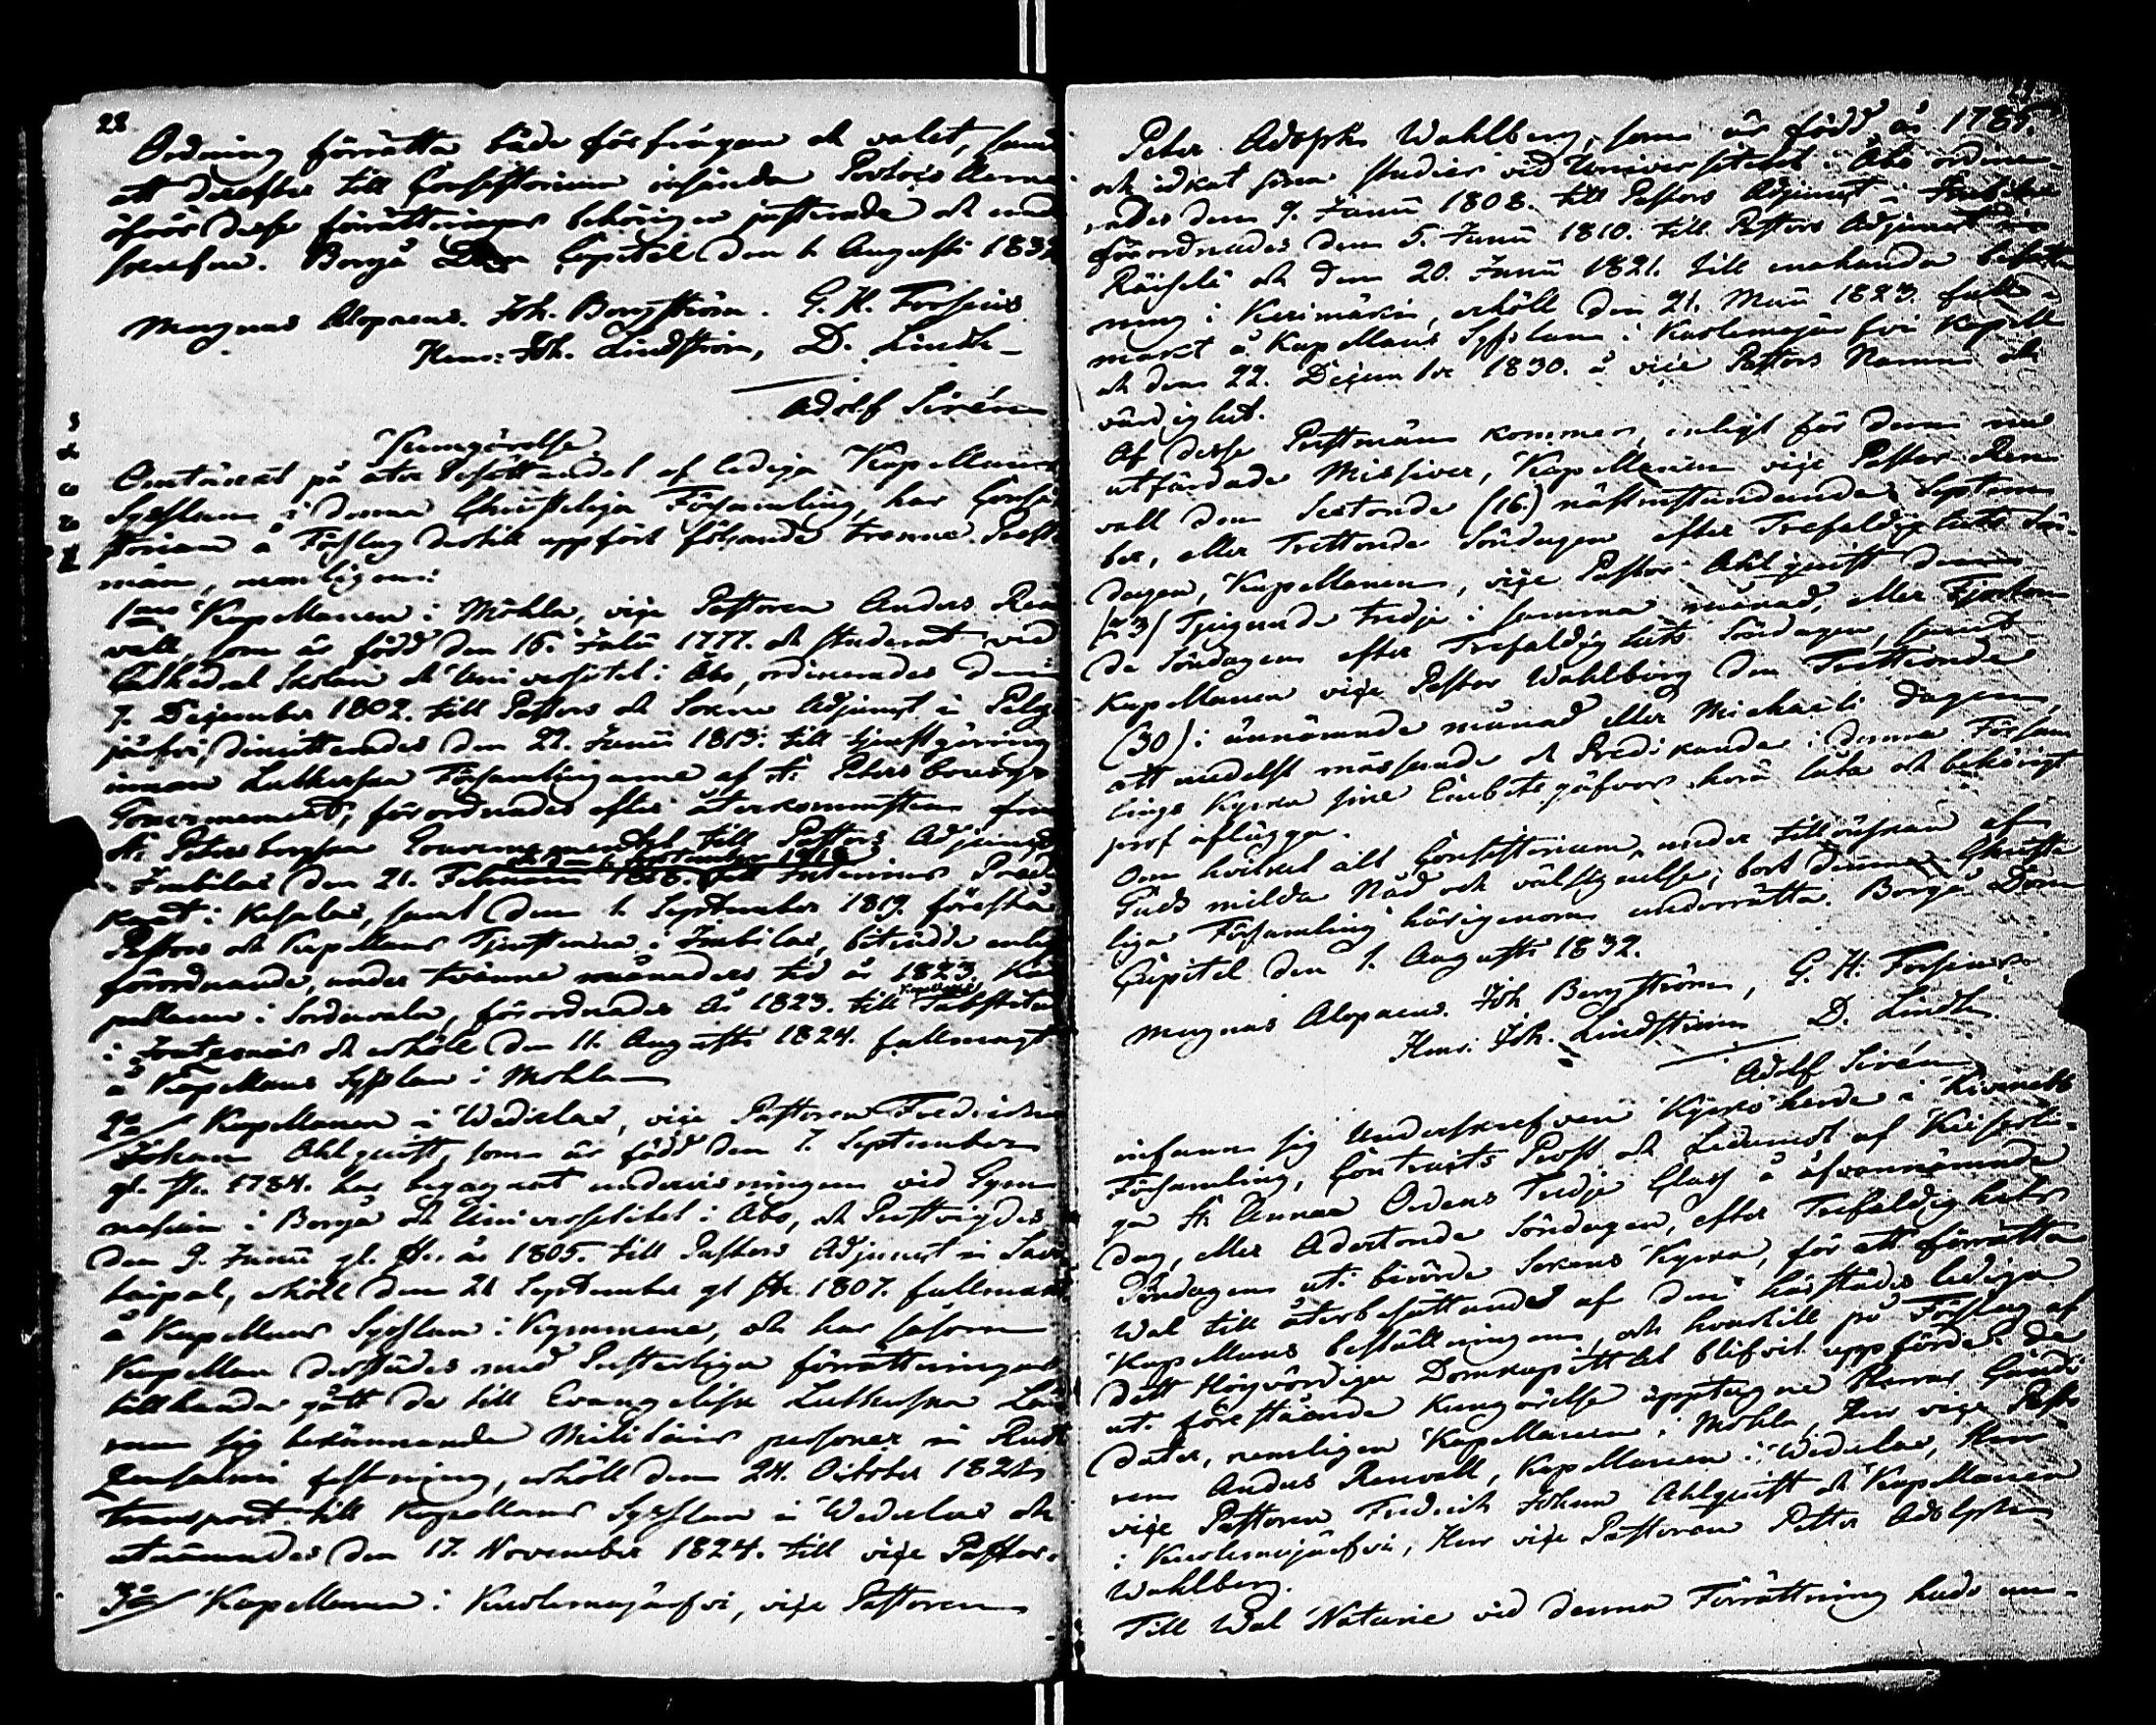 28
Ordning förrätta både förfrågan och valet, samt
att derefter till Consistorium insända Protocollerne
öfver desse förrättningar behörigen justerade och under
skrefne. Borgå Dom Capitel den 1 Augusti 1832
Magnus Alopaeus. Joh. Borgström. G. H. Forsius.
Henr: Joh. Lindström, D. Lindh
Adolf Sirén
Kungörelse
Omtänckt på återbesättandet af lediga Kapellans
Sysslan i denna Christeliga Församling, har Consi
storium å Förslag dertill uppfört följande trenne Prest
män, nemligen:
1mo Kapellanen i Mohla, vice Pastoren Anders Ren
vall, som är född den 16. Julii 1777. och studerat vid
Cathedral Scolan och Universitetet i Åbo, ordinerades den
7. December 1802. till Pastors och Sokne Adjunct i Pelg
järfvi, dimitterades den 27. Junii 1813. till tjenstgöring
innom Lutherska Församlingarne af St: Petersbourgs
Gouvernement, förordnades efter återkommsten från
St: Petersborgska Gouvernementet till Pastors Adjunct
den 1. November 1816
i Imbilax den 21. Februarii 1818. till Interims Predi
kant i Kesälax, samt den 1. September 1819. förestå
Pastors och Kapellans Tjensterna i Imbilax, biträdde enligt
förordnande, under tvänne månaders tid år 1823. Ka
pellanen i Sordavala, förordnades År 1823. till Kapellans Substitut
i Joutsenois och erhöll den 11. Augusti 1824. fullmagt
å Kapellans Sysslan i Mohla
2o/ Kapellanen i Wederlax, vice Pastoren Fredrich
Johan Ahlquist, som är född den 7. September
gl. St. 1784. har begagnat undervisningen vid Gym
nasium i Borgå och Universitetet i Åbo, och Prestvigdes
den 9. Junii gl. St. år 1805. till Pastors Adjunct i Savi
taipal, erhöll den 21 September gl St. 1807. fullmakt
å Kapellans Sysslan i Kymmene, och har såsom
Kapellan derstädes med Presterliga förrättningar
tillhanda gått de till Evangelisk Lutherska Lä
ran sig bekännande Militäire personer i Ruot
sensalmi fästning, erhöll den 24. October 1821
transport till Kapellans Sysslan i Wederlax och
utnämndes den 17. November 1824. till vice Pastor.
3o/ Kapellanen i Kuolemajärfvi, vice Pastoren
Peter Adolph Wahlberg, som är född år 1785.
och idkat sina studier vid Universitetet i Åbo ordine
rades den 9. Junii 1808. till Pastors Adjunct i Imbilax
förordnades den 5. Junii 1810. till Pastors Adjunct i
Räisälä och den 20. Junii 1821. till enahanda befatt
ning i Kerimäki, erhöll den 21. Maii 1823. full
makt å Kapellans Sysslan i Kuolemajärfvi Kapell
och den 22. December 1830. å vice Pastors Namn och
värdighet.
Af desse Prestmän kommer, enligt för dem nu
utfärdade Missiver, Kapellanen vice Pastor Ren
vall den Sextonde (16) nästinstundande Septem
ber, eller Trettonde Söndagen efter Trefaldighets Sön-
dagen, Kapellanen, vice Pastor Ahlquist den
(23) Tjugunde tredje i samma månad, eller Fjorton
de Söndagen efter Trefaldighets Söndagen, samt
Kapellanen vice Pastor Wahlberg den Trettionde
(30) i ännämnde månad eller Michaeli dagen,
att medelst mässande och Predikande i denna Försam
lings Kyrka sine Embets gåfvor höra låta och behörigt
prof aflägga.
Om hvilket allt Consistorium, under tillönskan af
Guds milda Nåd och välsignelse, bort denna Christe
liga Församling härigenom underrätta. Borgå Dom
Capitel den 1. Augusti 1832.
Magnus Alopaeus. Joh Borgström, G. H. Forsius.
Henr. Joh. Lindström D. Lindh.
Adolf Sirén
infann sig Underskrefven Kyrkoherde i Kivinebb
Församling, Contracts Prost och Ledamot af Keiserli-
ga St. Annae Ordens Tredje Class å ofvannämnde
dag, eller Adertonde Söndagen, efter Trefaldighets
Söndagen uti berörde Sokens Kyrka, för att förrätta
Wal till återbesättandet af den härstädes lediga
Kapellans beställningen, och hvartill på Förslag af
dett Högvördiga Domkapittlet blifvit uppförde de
uti förestående Kungörelse upptagne Herrar Candi
dater, nemligen Kapellanen i Mohla, Herr vice Pasto
ren Anders Renvall, Kapellanen i Wederlax, Herr
vice Pastoren Fredrich Johan Ahlquist och Kapellanen
i Kuolemajärfvi, Herr vice Pastoren Petter Adolph
Wahlberg.
Till Wal Notarie vid denna Förrättning hade un-